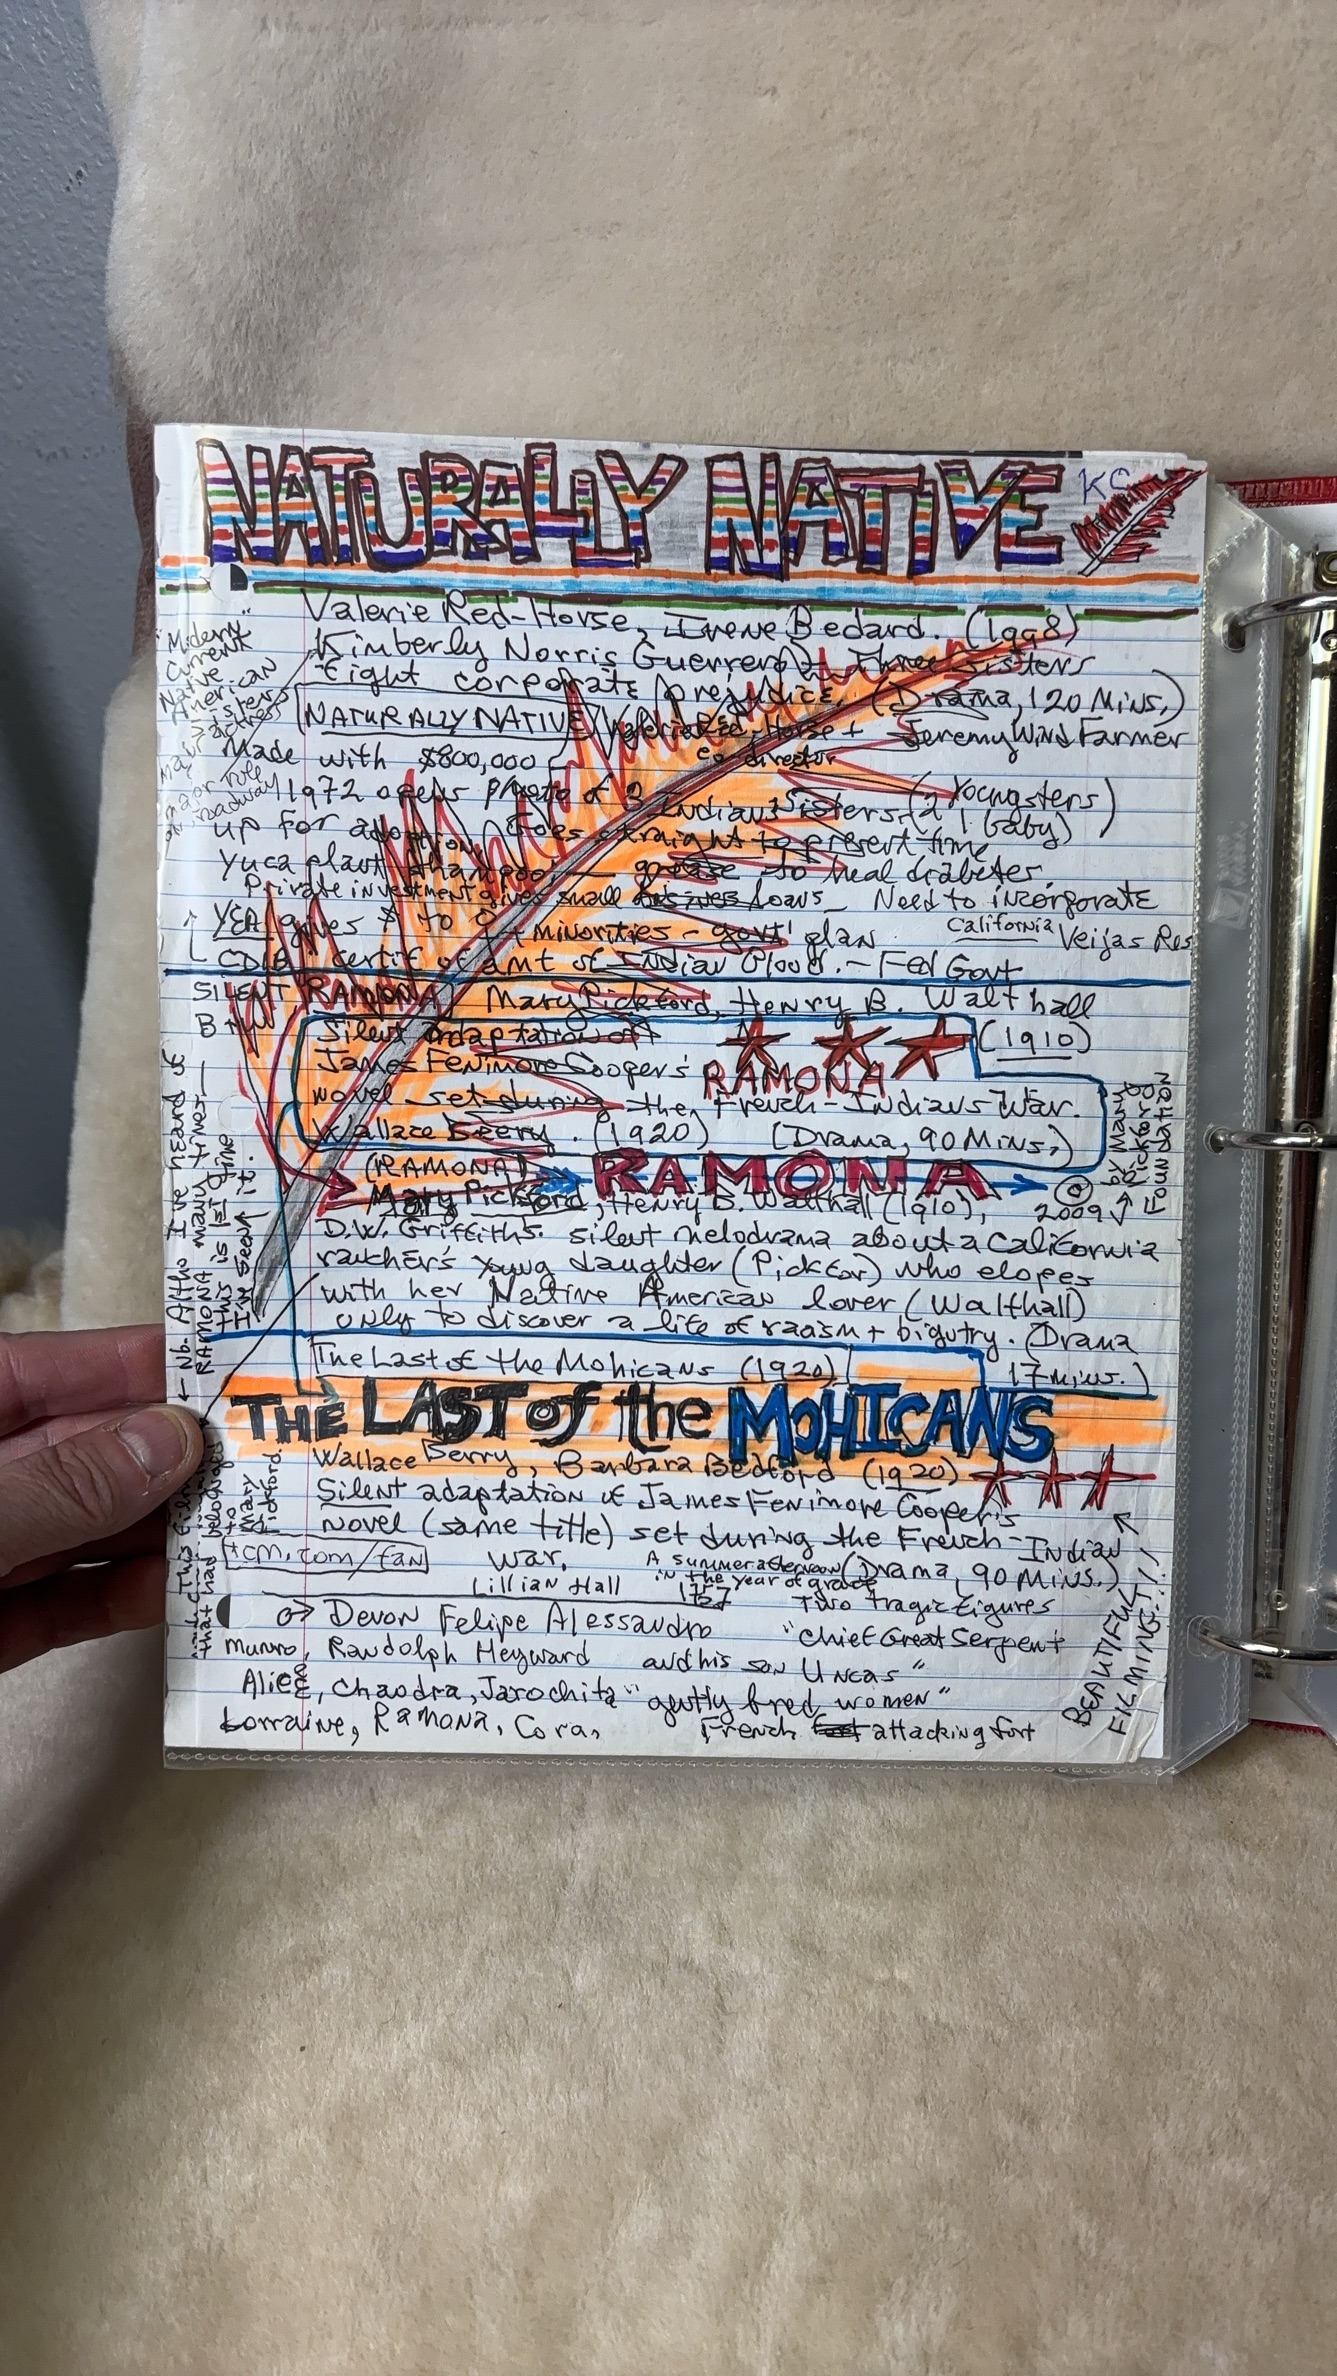 NATURALLY NATIVE
KC
Valerie Red-Horse, Irene Bedard. (1998)
Kimberly Norris Guerrero) - Three Sisters
Fight corporate prejudice. (Drama, 120 Mins.)
NATURALLY NATIVE Valerie Red-Horse + Jeremy Wind Farmer
co director
Made with $800,000
1972 opens photo of 3 Indians Sisters (2 Youngsters
1 baby)
up for adoption. Goes straight to present time
Yuca plant shampoo - to heal diabetes.
Private investment gives small loans - Need to incorporate
YEA gives $ to
minorities - govt' plan
California Veijas Res
CDIB" certif of amt of Indian Blood. - Fed Govt
"Modern"
Current
Native
American
Sisters
major role
SILENT RAMONA Mary Pickford, Henry B. Walthall
B + W
(1910)
Silent adaptation of
James Fenimore Cooper's
RAMONA
novel set during the French-Indians War.
Wallace Beery. (1920) (Drama, 90 Mins.)
(RAMONA)
RAMONA
© 2009
by Mary
Pickford
Foundation
Mary Pickford, Henry B. Walthall (1910),
D.W. Griffiths. silent melodrama about a California
rancher's young daughter (Pickfor) who elopes
with her Native American lover (Walthall)
only to discover a life of racism + bigutry. (Drama
17 mins.)
← Nb. Altho I've heard of
RAMONA many times -
this is 1st time
I've seen it.
The Last of the Mohicans (1920)
THE LAST of the MOHICANS
Wallace Berry, Barbara Bedford (1920)
Silent adaptation of James Fenimore Cooper's
novel (same title) set during the French-Indian
War. (Drama, 90 MINS.)
A summer afternoon
in the year of grace
1757
tcm.com/fan
Lillian Hall
Two tragic figures
Devon Felipe Alessandro
"Chief Great Serpent
and his son Uncas"
munro, Randolph Heyward
Alice, Chaodra, Jarochita "gently bred women"
Lorraine, Ramona, Cora,
French attacking fort
This film
that had
belonged
to
Mary
Pickford.
BEAUTIFUL
FILMING!!!